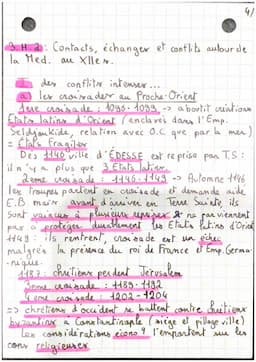 4/
B.H.2: Contacts, échanges et conflits autour de
la Med. au XIIe s.
I des conflits intenses...
a) les croisades au Proche-Orient
1ere croisade : 1095-1099 → aboutit créations
Etats latins d'Orient (enclavés dans l'Emp.
Seldjoukide, relation avec O.C que par la mer)
= Etats fragiles
Dès 1140 ville d'EDESSE est reprise par T.S :
il n'y a plus que 3 Etats latins
2ème croisade : 1146-1149 → Automne 1146
les troupes partent en croisade et demande aide
E.B mais avant d'arriver en Terre Sainte, ils
sont vaincus à plusieurs reprises & ne parviennent
pas à protéger durablement les Etats latins d'Orient
1149 : ils rentrent, croisade est un échec
malgrés la présence du roi de France et Emp. Germa-
-nique.
1187 : chrétiens perdent Jerusalem
3ème croisade : 1189-1192
4ème croisade : 1202-1204
=> chrétiens d'occident se battent contre chrétiens
byzantins à Constantinople (siège et pillage ville)
= considérations écono l'emportent sur les
cons religieuses